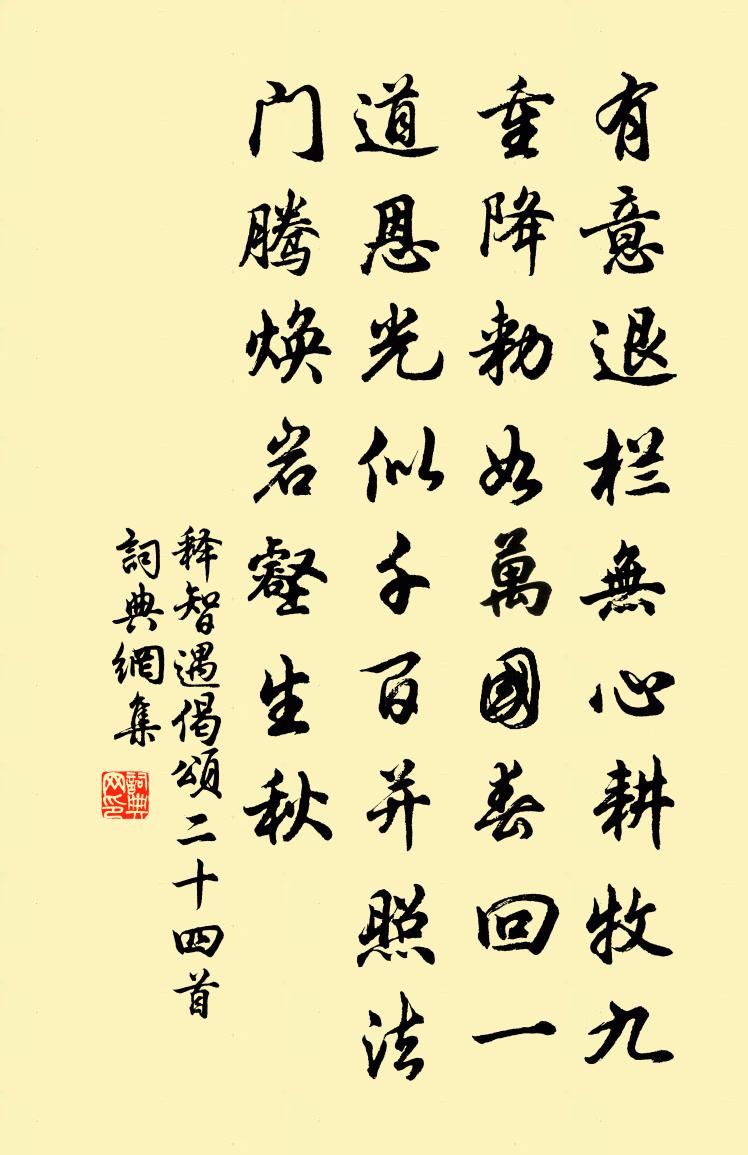 有意退栏無心耕牧九
重降勅如萬國春回一
道恩光似千百并照法
门腾焕岩壑生秋
释智遇偈頌二十四首
詞典網集
詞典网印